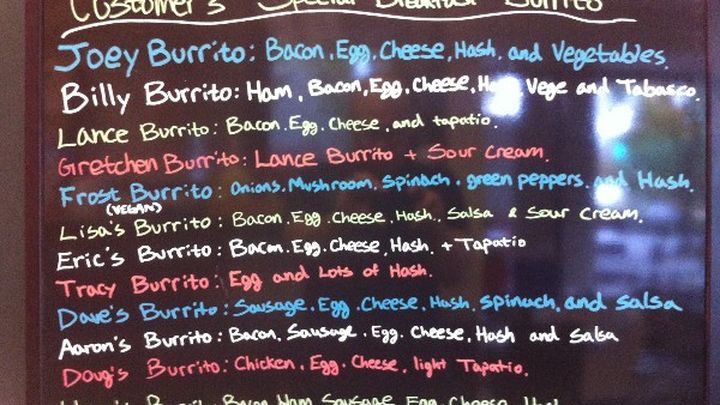 Customer's Special Breakfast Burrito
Joey Burrito: Bacon, Egg, Cheese, Hash, and Vegetables.
Billy Burrito: Ham, Bacon, Egg, Cheese, Hash, Vege and Tabasco.
Lance Burrito: Bacon, Egg, Cheese, and tapatio.
Gretchen Burrito: Lance Burrito + Sour Cream.
Frost Burrito: Onions, Mushroom, Spinach, green peppers, and Hash.
(VEGAN)
Lisa's Burrito: Bacon, Egg, Cheese, Hash, Salsa & Sour Cream.
Eric's Burrito: Bacon, Egg, Cheese, Hash, + Tapatio
Tracy Burrito: Egg and Lots of Hash.
Dave's Burrito: Sausage, Egg, Cheese, Hash, Spinach, and Salsa
Aaron's Burrito: Bacon, Sausage, Egg, Cheese, Hash and Salsa
Doug's Burrito: Chicken, Egg, Cheese, light Tapatio.
Burrito: Bacon Ham Sausage Egg Cheese